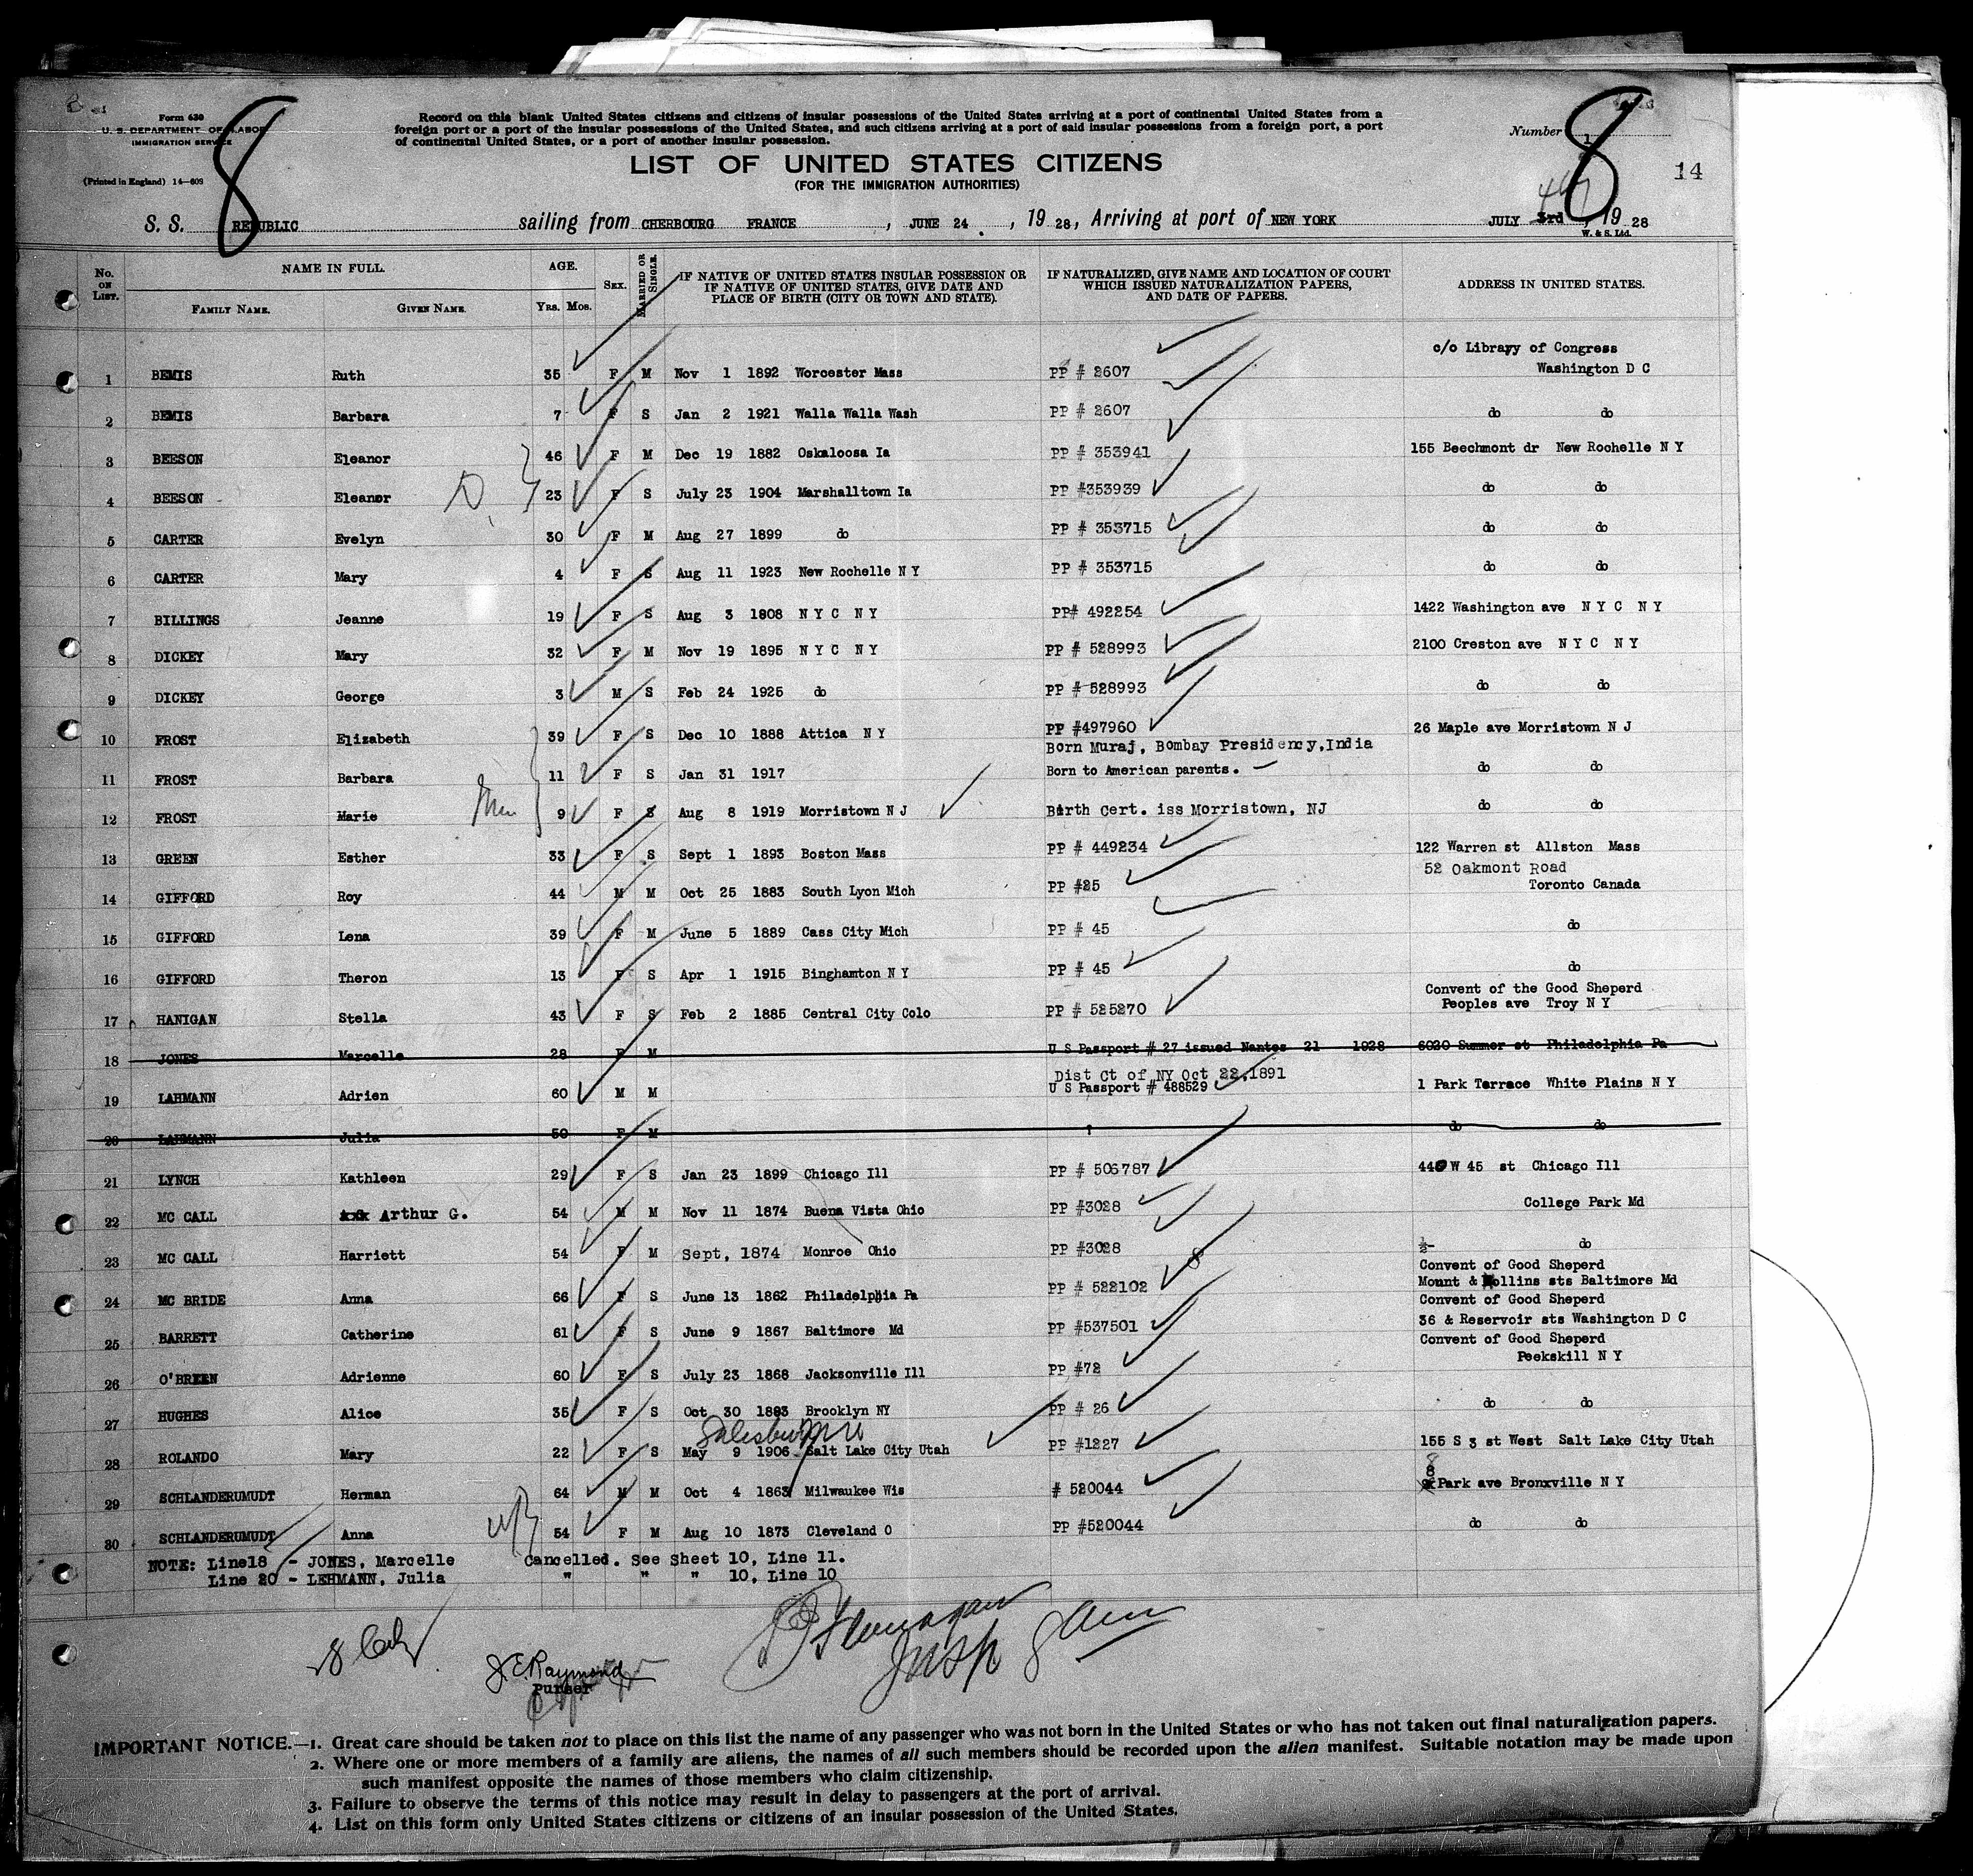 Form 630
U. S. DEPARTMENT OF LABOR
IMMIGRATION SERVICE
(Printed in England) 14—608
8
Record on this blank United States citizens and citizens of insular possessions of the United States arriving at a port of continental United States from a
foreign port or a port of the insular possessions of the United States, and such citizens arriving at a port of said insular possessions from a foreign port, a port
of continental United States, or a port of another insular possession.
Number 1
8
14
LIST OF UNITED STATES CITIZENS
(FOR THE IMMIGRATION AUTHORITIES)
S. S. REPUBLIC sailing from CHERBOURG FRANCE , JUNE 24 , 19 28, Arriving at port of NEW YORK JULY 3rd 4th , 19 28
W. & S. Ltd.
No. ON LIST. NAME IN FULL. AGE. SEX. MARRIED OR SINGLE. IF NATIVE OF UNITED STATES INSULAR POSSESSION OR IF NATIVE OF UNITED STATES, GIVE DATE AND PLACE OF BIRTH (CITY OR TOWN AND STATE). IF NATURALIZED, GIVE NAME AND LOCATION OF COURT WHICH ISSUED NATURALIZATION PAPERS, AND DATE OF PAPERS. ADDRESS IN UNITED STATES.
FAMILY NAME. GIVEN NAME. YRS. MOS.
c/o Library of Congress
1 BEMIS Ruth 35 F M Nov 1 1892 Worcester Mass PP # 2607 Washington D C
2 BEMIS Barbara 7 F S Jan 2 1921 Walla Walla Wash PP # 2607 do do
3 BEESON Eleanor 46 F M Dec 19 1882 Oskaloosa Ia PP # 353941 155 Beechmont dr New Rochelle N Y
4 BEESON Eleanor 23 F S July 23 1904 Marshalltown Ia PP #353939 do do
5 CARTER Evelyn 30 F M Aug 27 1899 do PP # 353715 do do
6 CARTER Mary 4 F S Aug 11 1923 New Rochelle N Y PP # 353715 do do
7 BILLINGS Jeanne 19 F S Aug 3 1808 N Y C NY PP# 492254 1422 Washington ave N Y C N Y
8 DICKEY Mary 32 F M Nov 19 1895 N Y C NY PP # 528993 2100 Creston ave N Y C N Y
9 DICKEY George 3 M S Feb 24 1925 do PP # 528993 do do
10 FROST Elizabeth 39 F S Dec 10 1888 Attica N Y PP #497960 26 Maple ave Morristown N J
Born Muraj, Bombay Presidency, India
11 FROST Barbara 11 F S Jan 31 1917 Born to American parents. do do
12 FROST Marie 9 F S Aug 8 1919 Morristown N J Birth Cert. iss Morristown, NJ do do
13 GREEN Esther 33 F S Sept 1 1893 Boston Mass PP # 449234 122 Warren st Allston Mass
52 Oakmont Road
14 GIFFORD Roy 44 M M Oct 25 1883 South Lyon Mich PP #25 Toronto Canada
15 GIFFORD Lena 39 F M June 5 1889 Cass City Mich PP # 45 do
16 GIFFORD Theron 13 F S Apr 1 1915 Binghamton N Y PP # 45 do
Convent of the Good Sheperd
17 HANIGAN Stella 43 F S Feb 2 1885 Central City Colo PP # 525270 Peoples ave Troy N Y
18 JONES Marcelle 28 F M U S Passport # 27 issued Nantes 21 1928 6020 Summer st Philadelphia Pa
Dist Ct of NY Oct 22, 1891
19 LAHMANN Adrien 60 M M U S Passport # 488529 1 Park Terrace White Plains N Y
20 LAHMANN Julia 50 F M do do
21 LYNCH Kathleen 29 F S Jan 23 1899 Chicago Ill PP # 506787 440 W 45 st Chicago Ill
22 MC CALL Arthur G. 54 M M Nov 11 1874 Buena Vista Ohio PP #3028 College Park Md
23 MC CALL Harriett 54 F M Sept, 1874 Monroe Ohio PP #3028 do
Convent of Good Sheperd
Mount & Hollins sts Baltimore Md
24 MC BRIDE Anna 66 F S June 13 1862 Philadelphia Pa PP # 522102
Convent of Good Sheperd
36 & Reservoir sts Washington D C
25 BARRETT Catherine 61 F S June 9 1867 Baltimore Md PP #537501
Convent of Good Sheperd
Peekskill N Y
26 O'BREEN Adrienne 60 F S July 23 1868 Jacksonville Ill PP #72
27 HUGHES Alice 35 F S Oct 30 1893 Brooklyn NY PP # 26 do do
28 ROLANDO Mary 22 F S May 9 1906 Salt Lake City Utah PP #1227 155 S 3 st West Salt Lake City Utah
29 SCHLANDERUMUDT Herman 64 M M Oct 4 1863 Milwaukee Wis # 520044 8 Park ave Bronxville N Y
30 SCHLANDERUMUDT Anna 54 F M Aug 10 1873 Cleveland O PP #520044 do do
NOTE: Line18 - JONES, Marcelle Cancelled. See Sheet 10, Line 11.
Line 20 - LEHMANN, Julia " " " 10, Line 10
J. E. Raymond
Purser
IMPORTANT NOTICE.—1. Great care should be taken not to place on this list the name of any passenger who was not born in the United States or who has not taken out final naturalization papers.
2. Where one or more members of a family are aliens, the names of all such members should be recorded upon the alien manifest. Suitable notation may be made upon
such manifest opposite the names of those members who claim citizenship.
3. Failure to observe the terms of this notice may result in delay to passengers at the port of arrival.
4. List on this form only United States citizens or citizens of an insular possession of the United States.